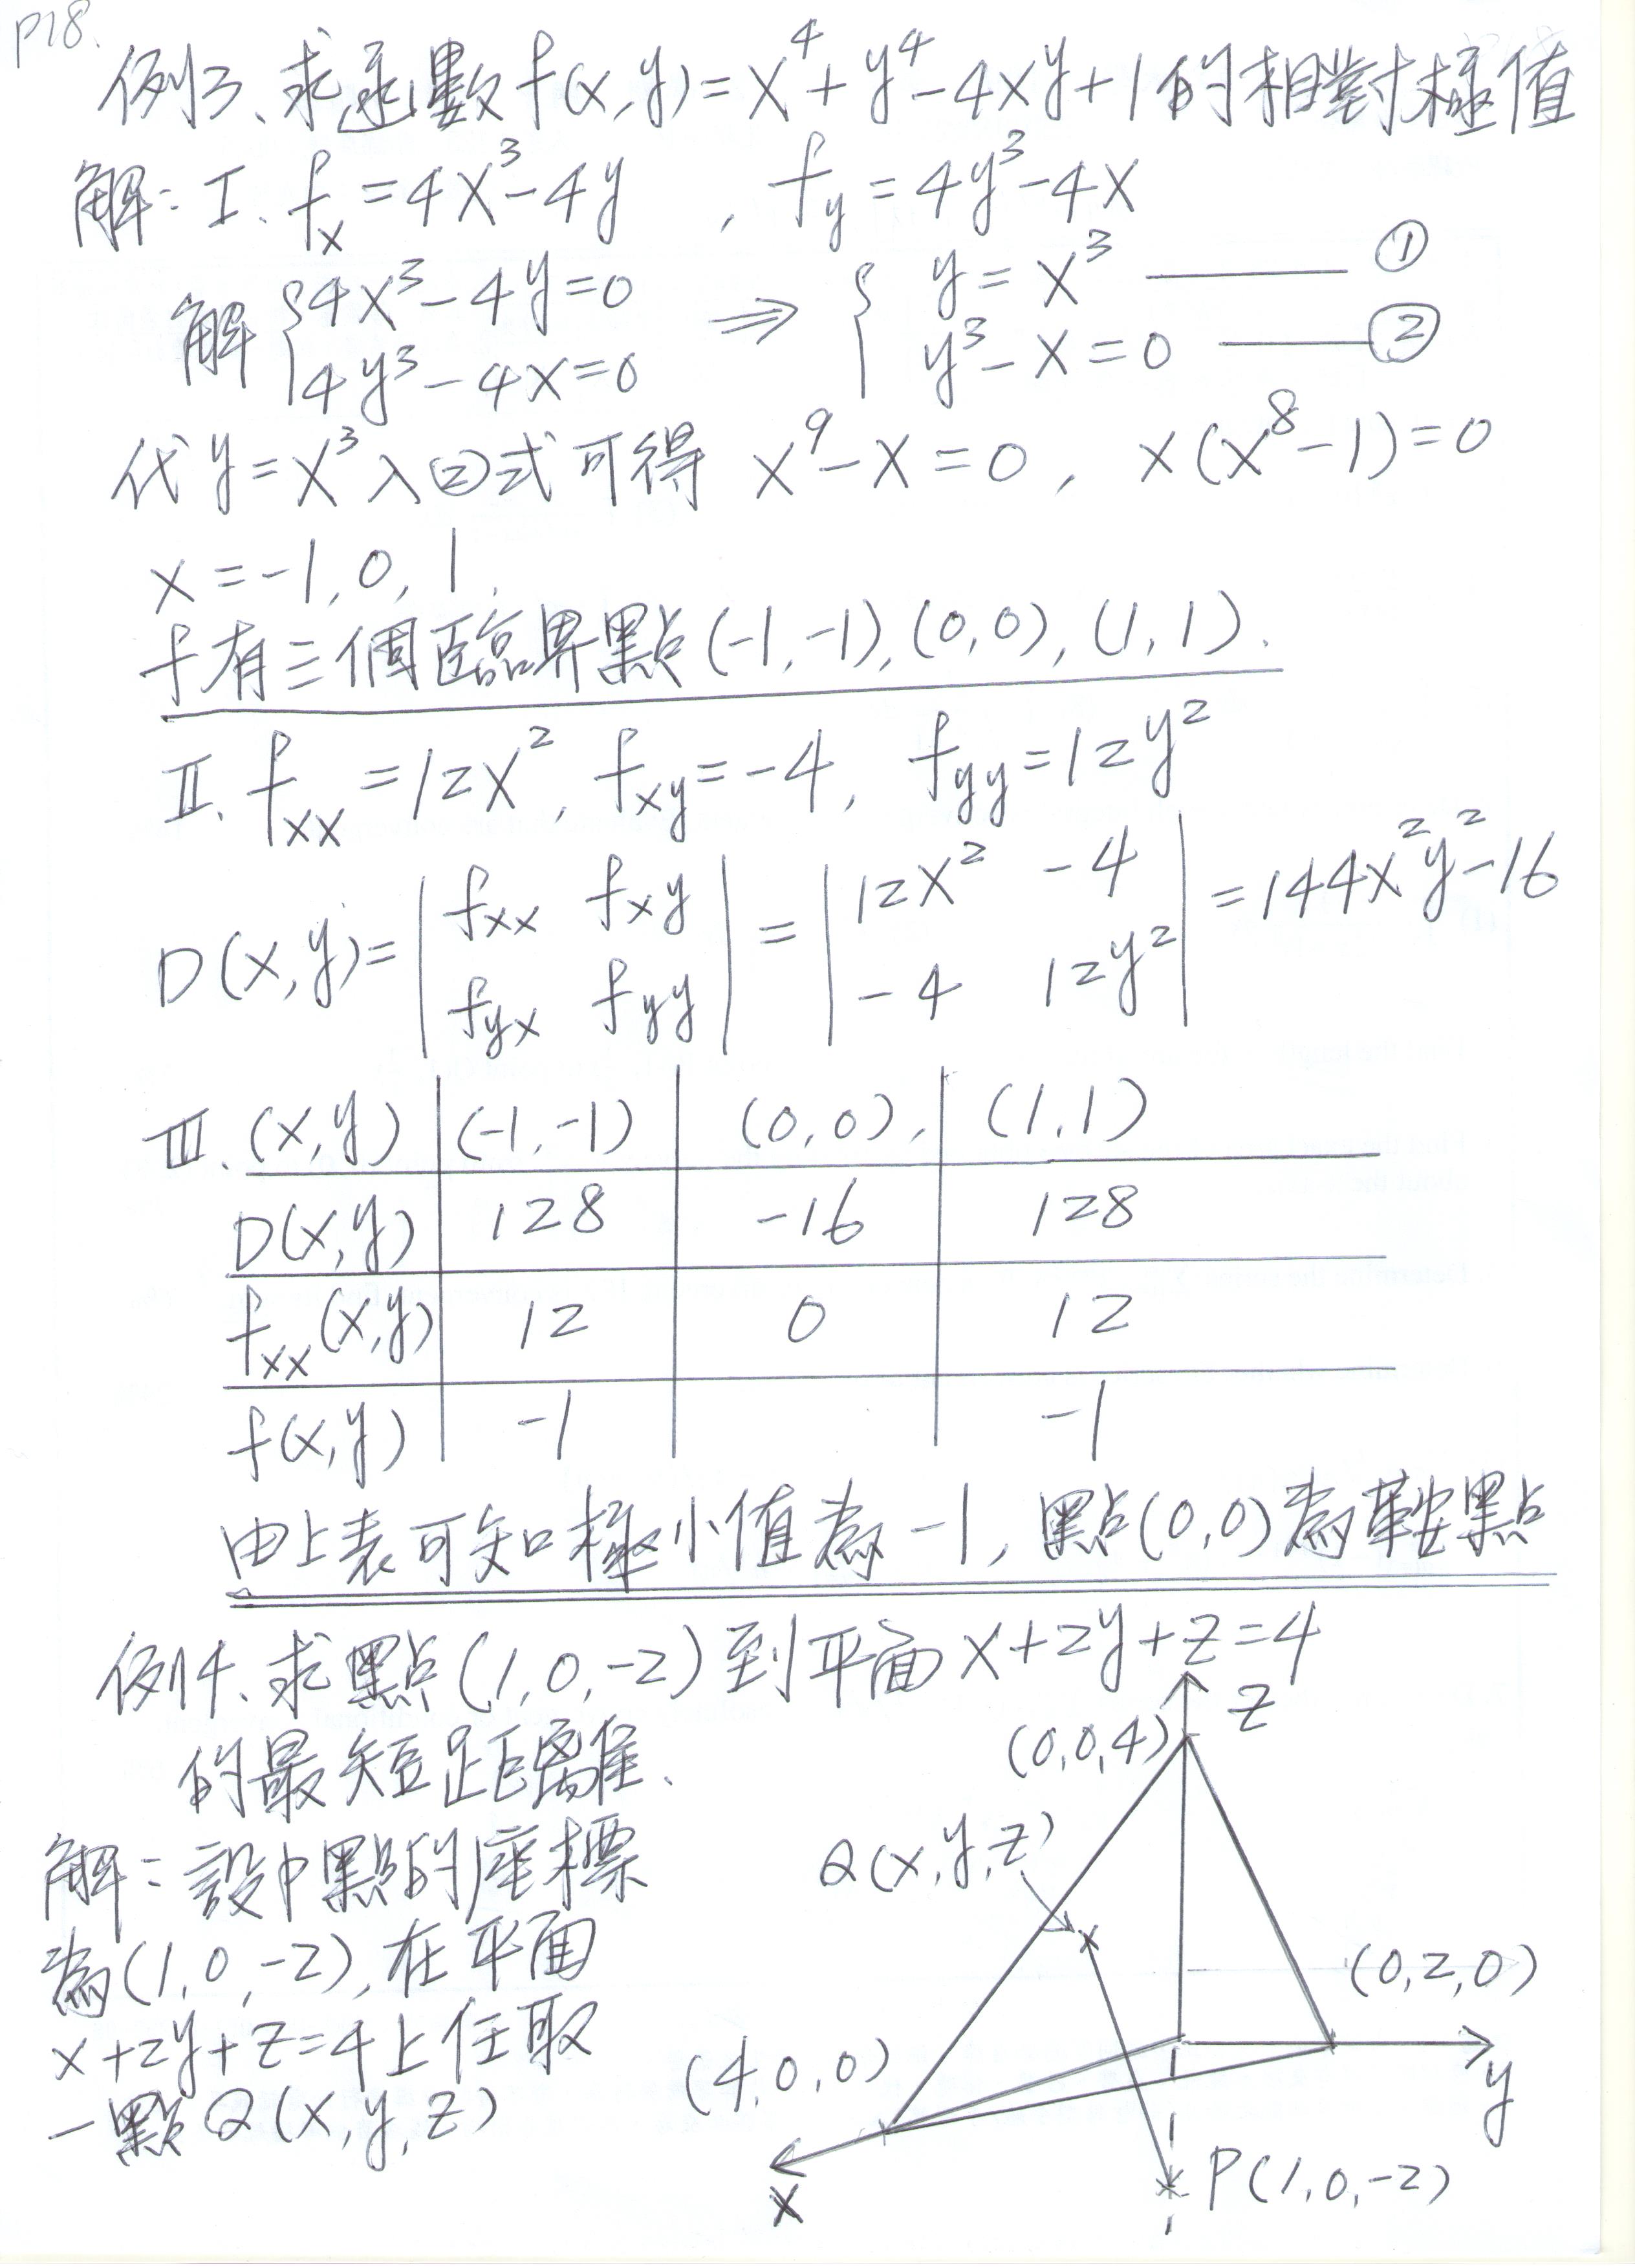 P18.
例3、求函數 f(x,y)=x⁴+y⁴-4xy+1的相對極值
解:I. fₓ=4x³-4y , f_y=4y³-4x
解 {4x³-4y=0 ⇒ { y=x³ ——— ①
4y³-4x=0 y³-x=0 ——— ②
代y=x³入②式可得 x⁹-x=0, x(x⁸-1)=0
x=-1, 0, 1.
f有三個臨界點(-1,-1),(0,0),(1,1).
II. fₓₓ=12x², f_xy=-4, f_yy=12y²
D(x,y)=|fₓₓ f_xy; f_yx f_yy|=|12x² -4; -4 12y²|=144x²y²-16
III. (x,y) (-1,-1) (0,0), (1,1)
D(x,y) 128 -16 128
fₓₓ(x,y) 12 0 12
f(x,y) -1 -1
由上表可知極小值為-1, 點(0,0)為鞍點
例4、求點(1,0,-2)到平面x+2y+z=4
的最短距離.
解:設P點的座標
為(1,0,-2),在平面
x+2y+z=4上任取
一點Q(x,y,z)
z
(0,0,4)
Q(x,y,z)
(0,2,0)
(4,0,0)
y
x
P(1,0,-2)